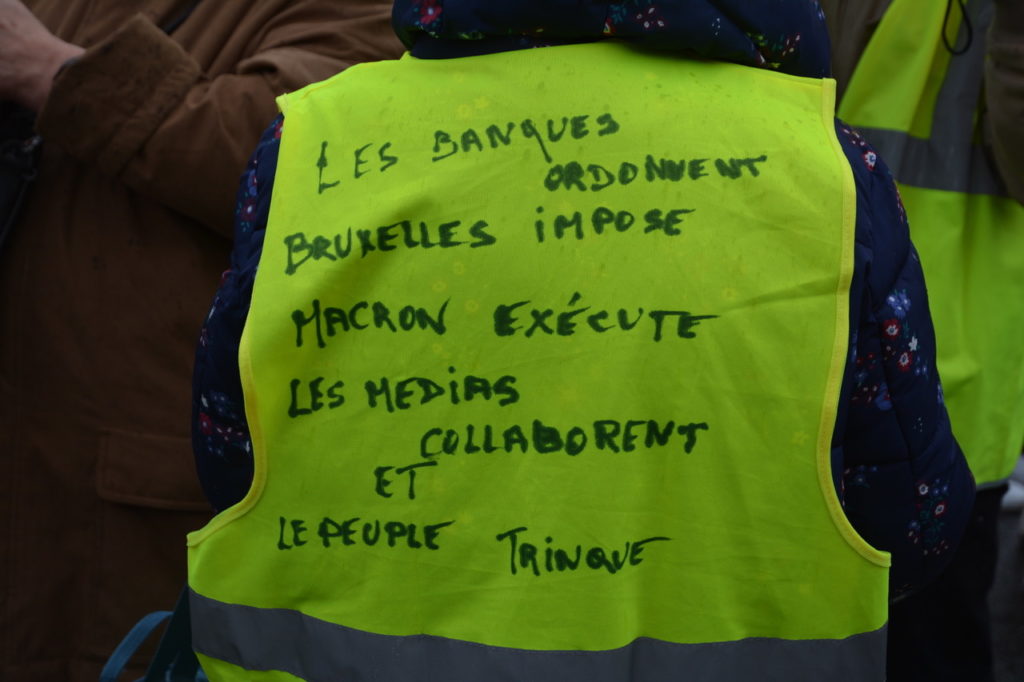 LES BANQUES
ORDONNENT
BRUXELLES IMPOSE
MACRON EXÉCUTE
LES MEDIAS
COLLABORENT
ET
LE PEUPLE TRINQUE